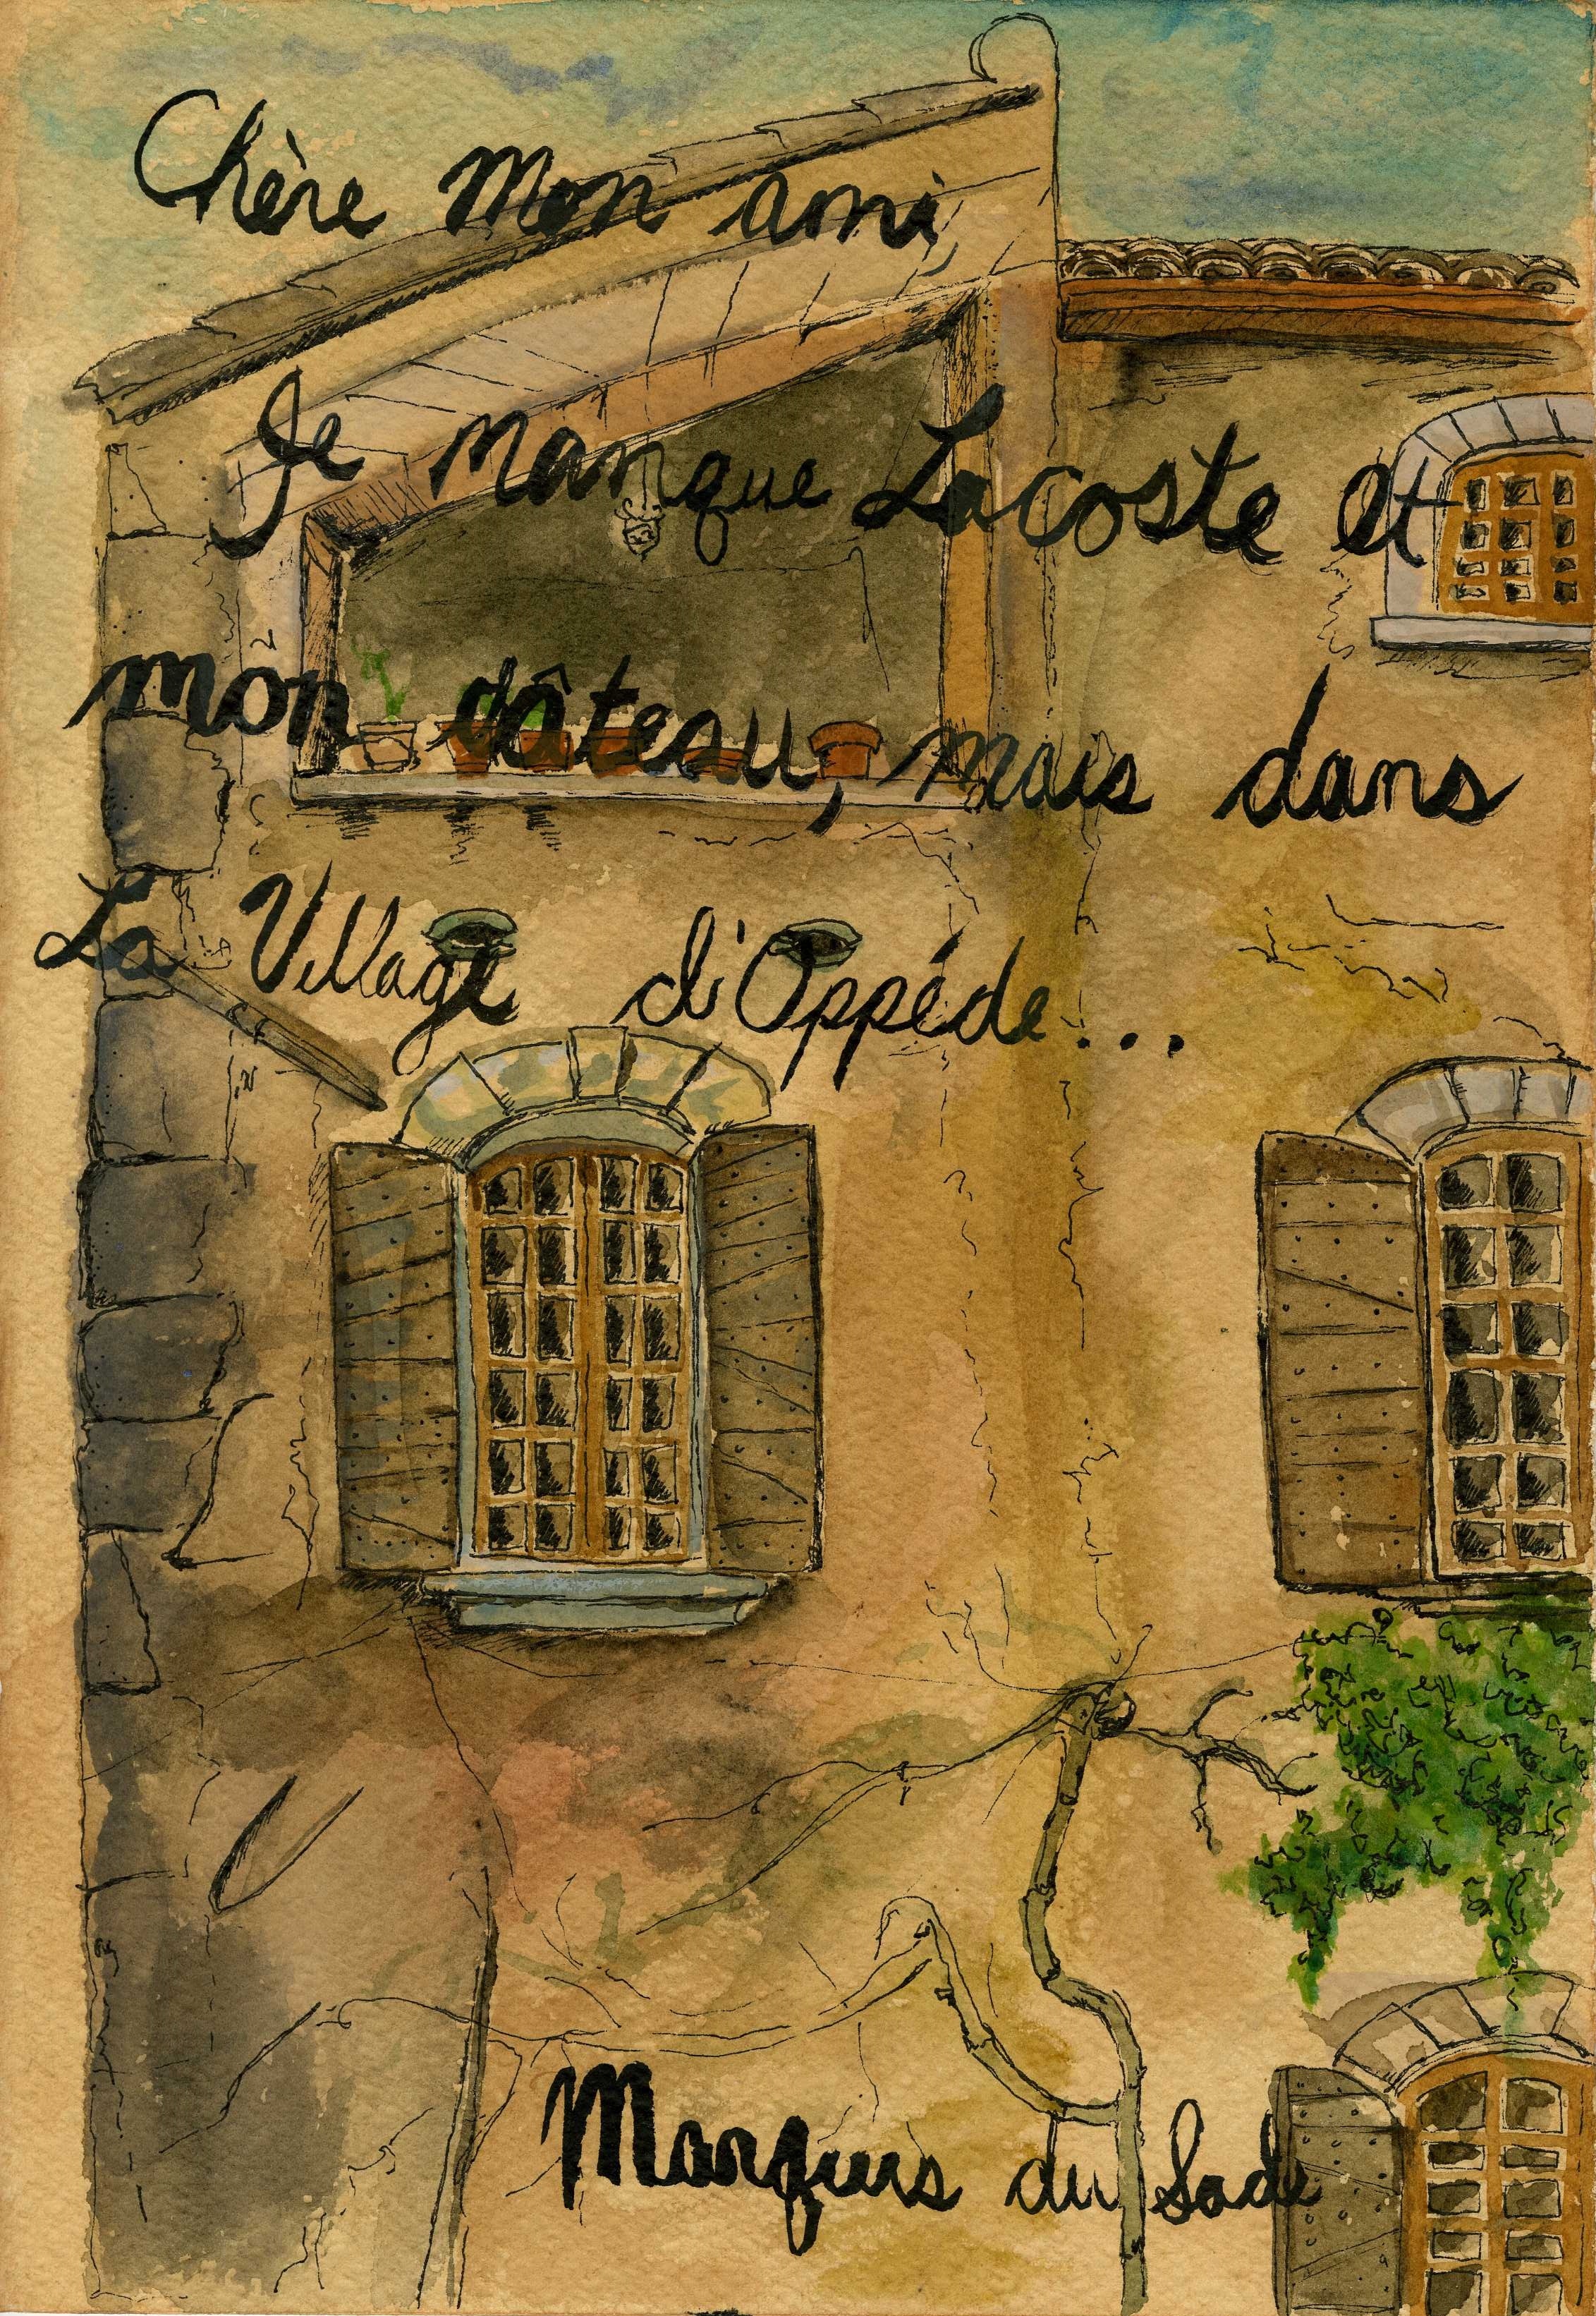 Chère Mon ami,
Je manque Lacoste et
mon gâteau, mais dans
La Village d'Oppéde...
Marquis du Sade